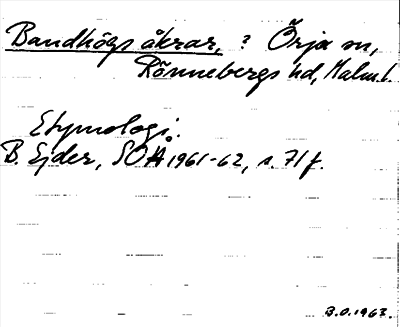 Bandhögs åkrar, ? Örja sn,
Rönnebergs hd, Malm. l.
Etymologi:
B. Ejder, SOÅ 1961-62, s. 71 f.
B.O. 1963.